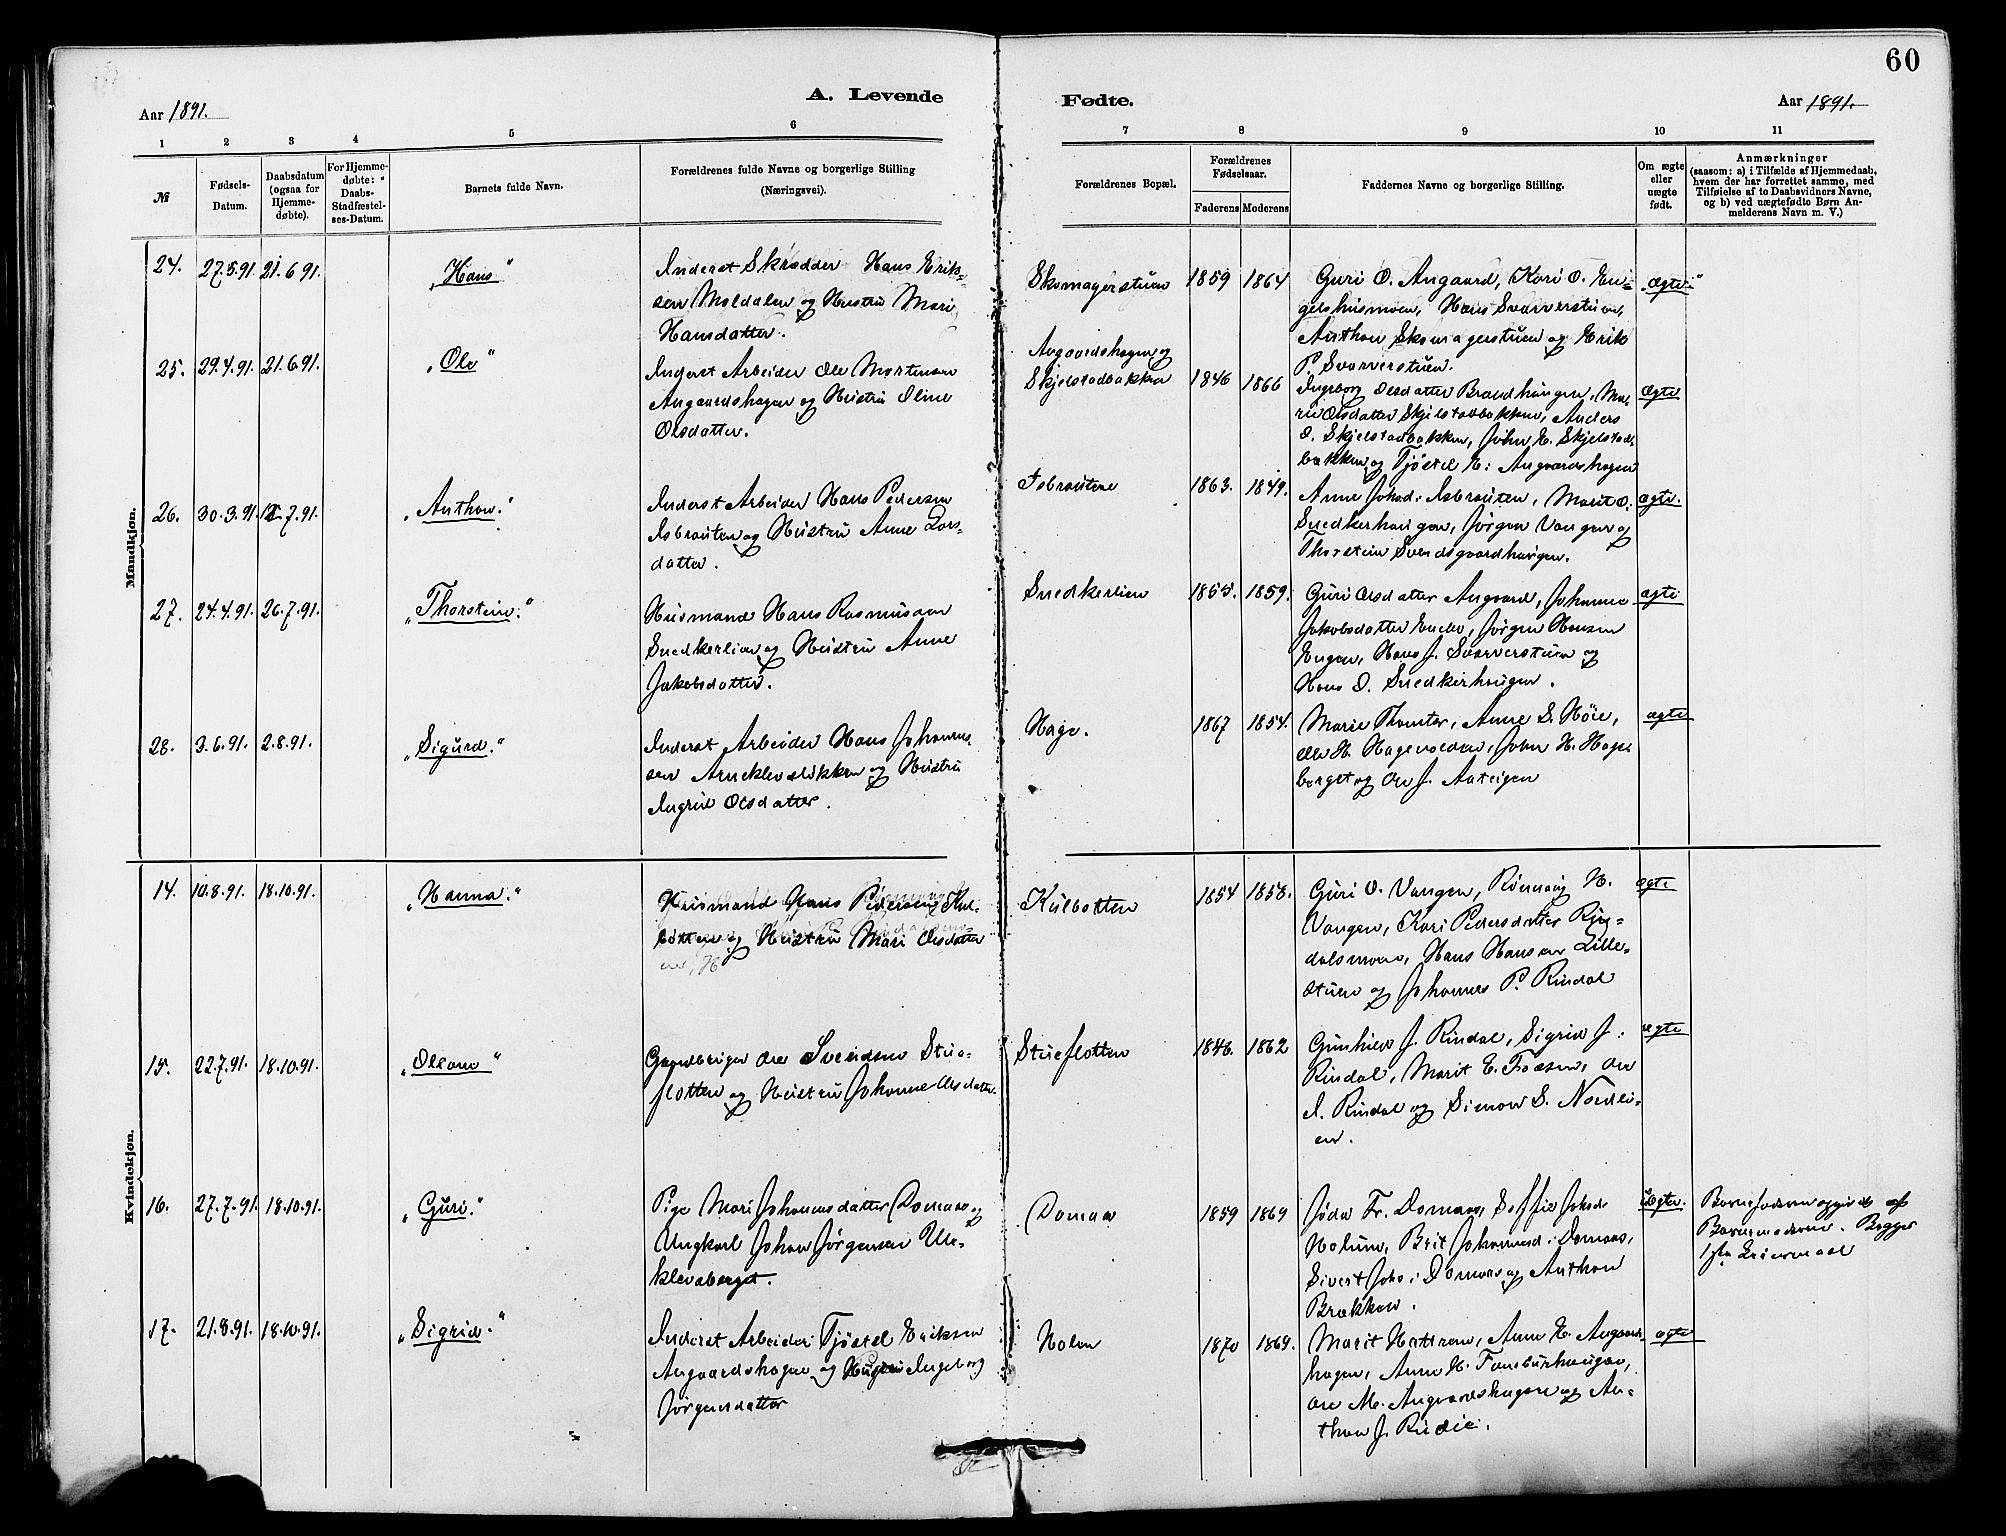 60
Aar 1891.
A. Levende
Fødte.
Aar 1891.
1 2 3 4 5 6 7 8 9 10 11
№
Fødsels-
Datum.
Daabsdatum
(ogsaa for
Hjemme-
døbte).
For Hjemme-
døbte:
Daabs-
Stadfæstel-
ses-Datum.
Barnets fulde Navn.
Forældrenes fulde Navne og borgerlige Stilling
(Næringsvei).
Forældrenes Bopæl.
Forældrenes
Fødselsaar.
Faderens Moderens
Faddernes Navne og borgerlige Stilling.
Om ægte
eller
uægte
født.
Anmærkninger
(saasom: a) i Tilfælde af Hjemmedaab,
hvem der har forrettet samme, med
Tilføielse af to Daabsvidners Navne,
og b) ved uægtefødte Børn An-
melderens Navn m. V.)
Mandkjøn.
24. 27.5.91. 21.6.91. „Hans“
Inderst Skrædder Hans Erik-
sen Moldalen og Hustru Mari
Hansdatter.
Skomagerstuen 1859 1864
Guri O. Angaard, Kari O. En-
gelshusmoen, Hans Svarverstuen,
Anthon Skomagerstuen og Erik
P. Svarverstuen.
„ægte“
25. 29.4.91. 21.6.91. „Ole“
Inderst Arbeider Ole Mortensen
Angaardshagen og Hustru Oline
Olsdatter.
Angaardshagen og
Skjelstadbakken 1846 1866
Ingeborg Olsdatter Brændhaugen, Ma-
ri Olsdatter Skjelstadbakken, Anders
O. Skjelstadbakken, John E. Skjelstad-
bakken og Tjøstel E. Angaardshagen
ægte
26. 30.3.91. 12.7.91. „Anthon.“
Inderst Arbeider Hans Pedersen
Isbrauten og Hustru Anne Lars-
datter.
Isbrautene 1863. 1849.
Anne Johsd. Isbrauten, Marit O.
Snedkerhaugen, Jørgen Vangen og
Thorstein Svendsgaardhaugen.
ægte.
27. 24.4.91. 26.7.91. „Thorstein.“
Husmand Hans Rasmussen
Snedkerlien og Hustru Anne
Jakobsdatter.
Snedkerlien 1855. 1859.
Guri Olsdatter Angaard, Johanne
Jakobsdatter Endbo, Jørgen Hansen
Engen, Hans J. Svarverstuen og
Hans O. Snedkerhaugen.
ægte
28. 3.6.91. 2.8.91. „Sigurd.“
Inderst Arbeider Hans Johanne-
sen Arneklevsløkken og Hustru
Ingrid Olsdatter.
Hage. 1867 1854.
Marie Thomter, Anne S. Høie,
Ole H. Hagensveen, John H. Hage-
berget og Ole J. Aateigen
ægte
Kvindekjøn.
14. 10.8.91. 18.10.91. „Hanna.“
Husmand Hans Pedersen Kul-
botten og Hustru Mari Olsdatter
Kulbotten 1854 1858.
Guri O. Vangen, Rønnaug H.
Vangen, Kari Pedersdatter Rin-
dalsmoen, Hans Hansen Lille-
stuen og Johannes P. Rindal
ægte
15. 22.7.91. 18.10.91. „Oleane“
Gaardbruger Ole Svendsen Stue-
flotten og Hustru Johanne Olsdatter.
Stueflotten 1846. 1862
Gunhild J. Rindal, Sigrid J.
Rindal, Marit E. Frøsen, Ole
I. Rindal og Simon S. Nordli-
en.
ægte
16. 27.7.91. 18.10.91. „Guri.“
Pige Mari Johannesdatter Domaas og
Ungkarl Johan Jørgensen Ule-
klevaberget.
Domaas 1859 1869
Jøda Fr. Domaas, Soffie Johsd.
Holum, Brit Johannesd. Domaas,
Sivert Johs. Domaas og Anthon
Brækken.
uægte.
Barnefaderen opgivet af
Barnemoderen. Begges
1ste Leiermaal
17. 21.8.91. 18.10.91. „Sigrid.“
Inderst Arbeider Tjøstel Eriksen
Angaardshagen og Hustru Ingeborg
Jørgensdatter
Holen 1870 1869.
Marit Hattrem, Anne E. Angaards-
hagen, Anne H. Tamburhaugen,
Ole M. Angaardshagen og An-
thon J. Rudie.
ægte